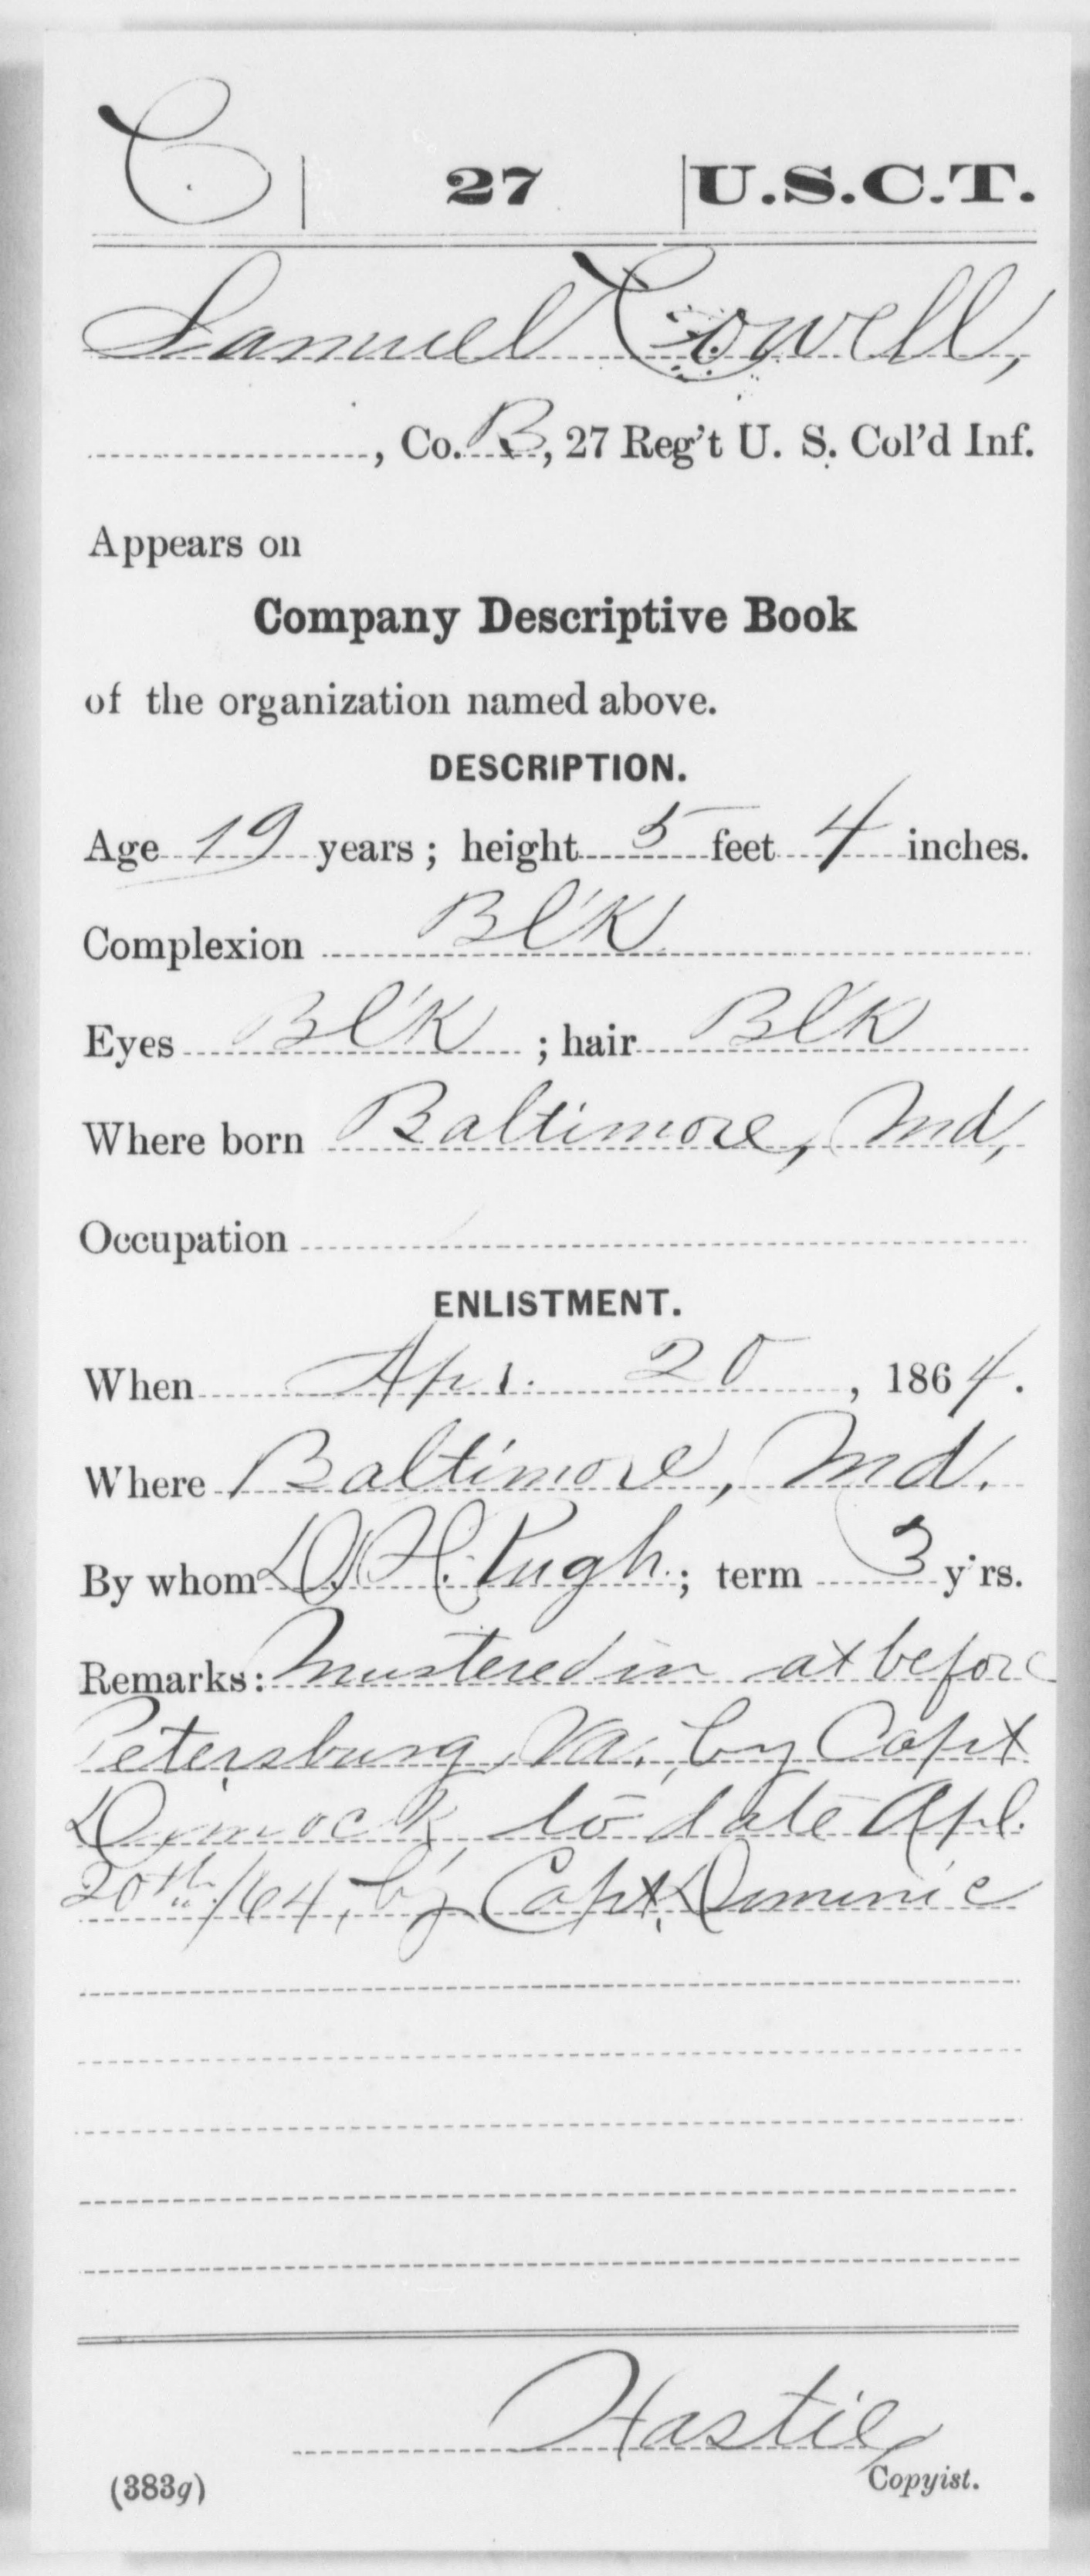 C | 27 | U.S.C.T.
Samuel Cowell,
, Co. B, 27 Reg't U. S. Col'd Inf.
Appears on
Company Descriptive Book
of the organization named above.
DESCRIPTION.
Age 19 years; height 5 feet 4 inches.
Complexion Bl'k
Eyes Bl'k ; hair Bl'k
Where born Baltimore, Md,
Occupation
ENLISTMENT.
When Apr. 20, 1864.
Where Baltimore, Md.
By whom D. H. Pugh.; term 3 y'rs.
Remarks: Mustered in at before
Petersburg, Va., by Capt
Dimock, to date Apl.
20th/64, by Capt. Dimmic
Hastie
Copyist.
(383g)